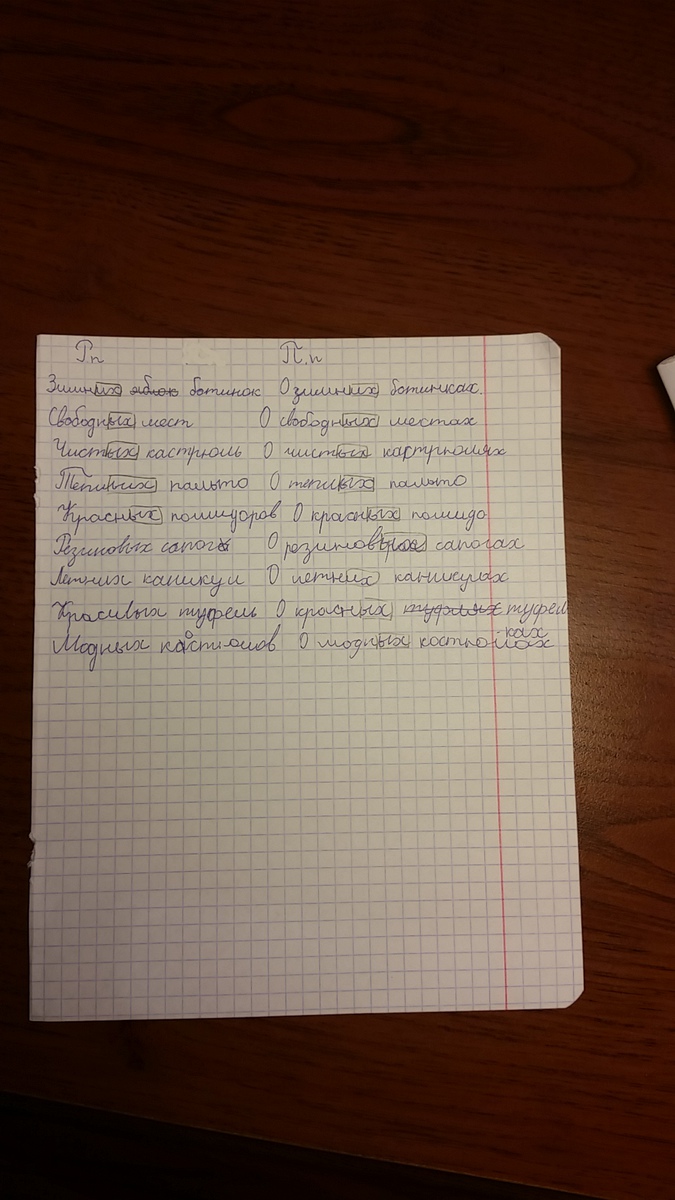 Рп П.п
Зимних яблок ботинок О зимних ботинках.
Свободных мест О свободных местах
Чистых кастрюль О чистых картрюлях
Тёплых пальто О теплых пальто
Красных помидоров О красных помидо
Резиновых сапог О резиновых сапогах
Летних каникул О летних каникулах
Красивых туфель О красных туфлях туфел
ках
Модных костюмов О модных костюмах